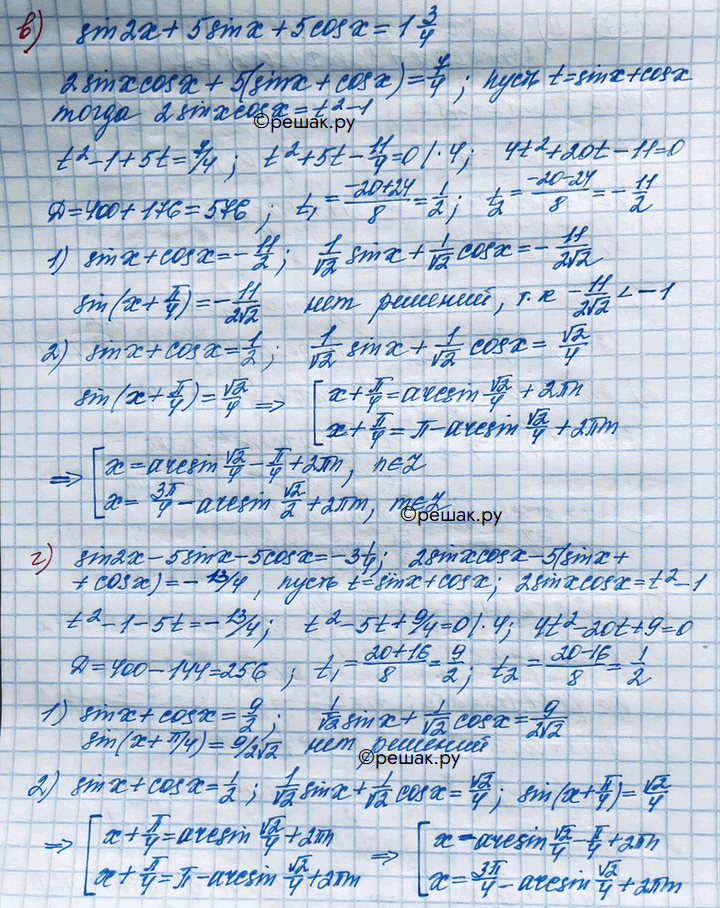 в) sin2x + 5sinx + 5cosx = 1 3/4
2sinxcosx + 5(sinx + cosx) = 7/4; пусть t = sinx + cosx
тогда 2sinxcosx = t² - 1
©решак.ру
t² - 1 + 5t = 7/4; t² + 5t - 11/4 = 0 |·4; 4t² + 20t - 11 = 0
Д = 400 + 176 = 576; t₁ = (-20+24)/8 = 1/2; t₂ = (-20-24)/8 = -11/2
1) sinx + cosx = -11/2; 1/√2 sinx + 1/√2 cosx = -11/(2√2)
sin(x + π/4) = -11/(2√2) нет решений, т.к -11/(2√2) < -1
2) sinx + cosx = 1/2; 1/√2 sinx + 1/√2 cosx = √2/4
sin(x + π/4) = √2/4 => [ x + π/4 = arcsin √2/4 + 2πn
x + π/4 = π - arcsin √2/4 + 2πm
=> [ x = arcsin √2/4 - π/4 + 2πn, n∈Z
x = 3π/4 - arcsin √2/2 + 2πm, m∈Z
©решак.ру
г) sin2x - 5sinx - 5cosx = -3 1/4; 2sinxcosx - 5(sinx +
+ cosx) = -13/4, пусть t = sinx + cosx; 2sinxcosx = t² - 1
t² - 1 - 5t = -13/4; t² - 5t + 9/4 = 0 |·4; 4t² - 20t + 9 = 0
Д = 400 - 144 = 256; t₁ = (20+16)/8 = 9/2; t₂ = (20-16)/8 = 1/2
1) sinx + cosx = 9/2; 1/√2 sinx + 1/√2 cosx = 9/(2√2)
sin(x + π/4) = 9/2√2 нет решений
©решак.ру
2) sinx + cosx = 1/2; 1/√2 sinx + 1/√2 cosx = √2/4; sin(x + π/4) = √2/4
=> [ x + π/4 = arcsin √2/4 + 2πn => [ x = arcsin √2/4 - π/4 + 2πn
x + π/4 = π - arcsin √2/4 + 2πm x = 3π/4 - arcsin √2/4 + 2πm